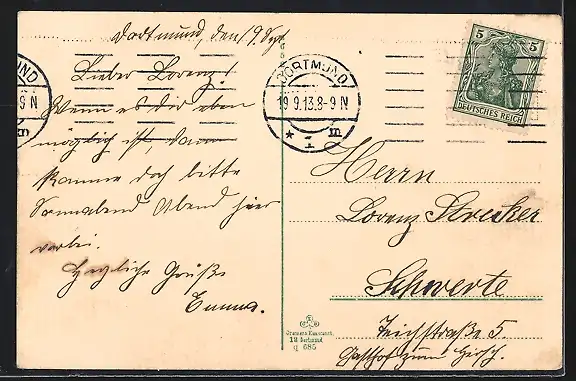 Dortmund, den 19. Sept.
Lieber Lorenz!
Wenn es dir eben
möglich ist, dann
komme doch bitte
Sonnabend Abend hier
vorbei.
Herzliche Grüße
Emma.
DORTMUND
19.9.13.8-9 N
* 1 m
5 5
DEUTSCHES REICH
Herrn
Lorenz Strecker
Schwerte
Teichstraße 5.
Gasthof zum Hirsch.
Cramers Kunstanst.
Dortmund
q 685